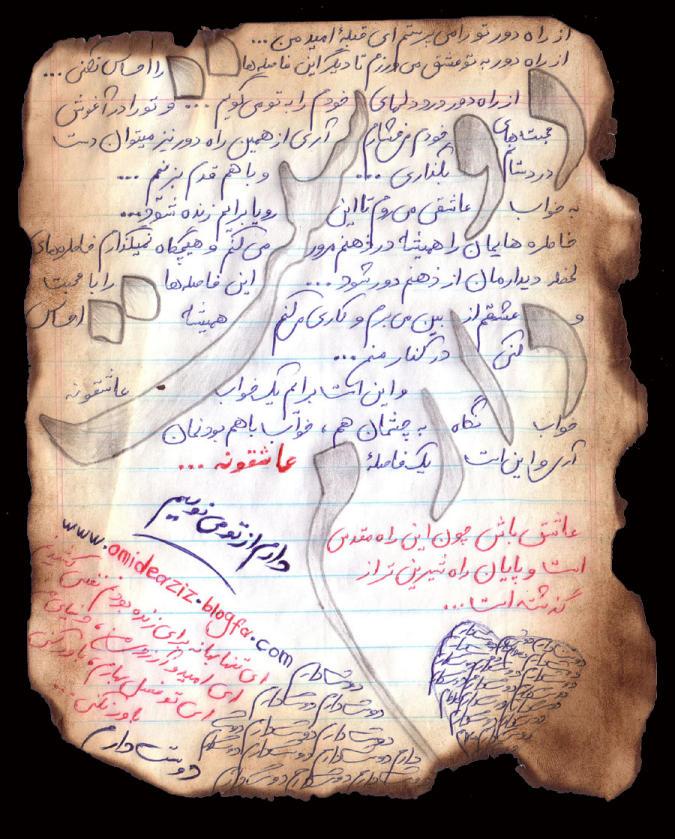 از راه دور تو را می پرستم ای قبلهٔ امید من ...
از راه دور به تو عشق می ورزم تا دیگر این فاصله ها را احساس نکنی ...
از راه دور درد دلهای خودم را به تو می گویم ... و تو را در آغوش
محبتهای خودم می فشارم آری از همین راه دور نیز میتوان دست
در دستانم بگذاری ... و با هم قدم بزنیم ...
به خواب عاشقی می روم تا این رویا برایم زنده شود ...
خاطره هایمان را همیشه در ذهنم مرور می کنم و هیچگاه نمیگذارم خاطره های
لحظه دیدارمان از ذهنم دور شود ... این فاصله ها را با محبت
و عشقم از بین می برم و کاری می کنم همیشه احساس
کنی در کنار منی ...
و این است برایم یک خواب عاشقونه
خواب نگاه به چشمان هم ، خواب با هم بودنمان
آری و این است یک فاصلهٔ عاشقونه ...
عاشق باش چون این راه مقدس
است و پایان راه شیرین تر از
گذشته است ...
دارم از تو می نویسم
www.omideaziz.blogfa.com
ای تنها بهانه برای زنده بودنم نفس کشیدنم
ای امید و آرزوی من ، دنیای من
ای تو فصل بهارم ، باور کنی
باور نکنی ...
دوستت دارم
دوستت دارم